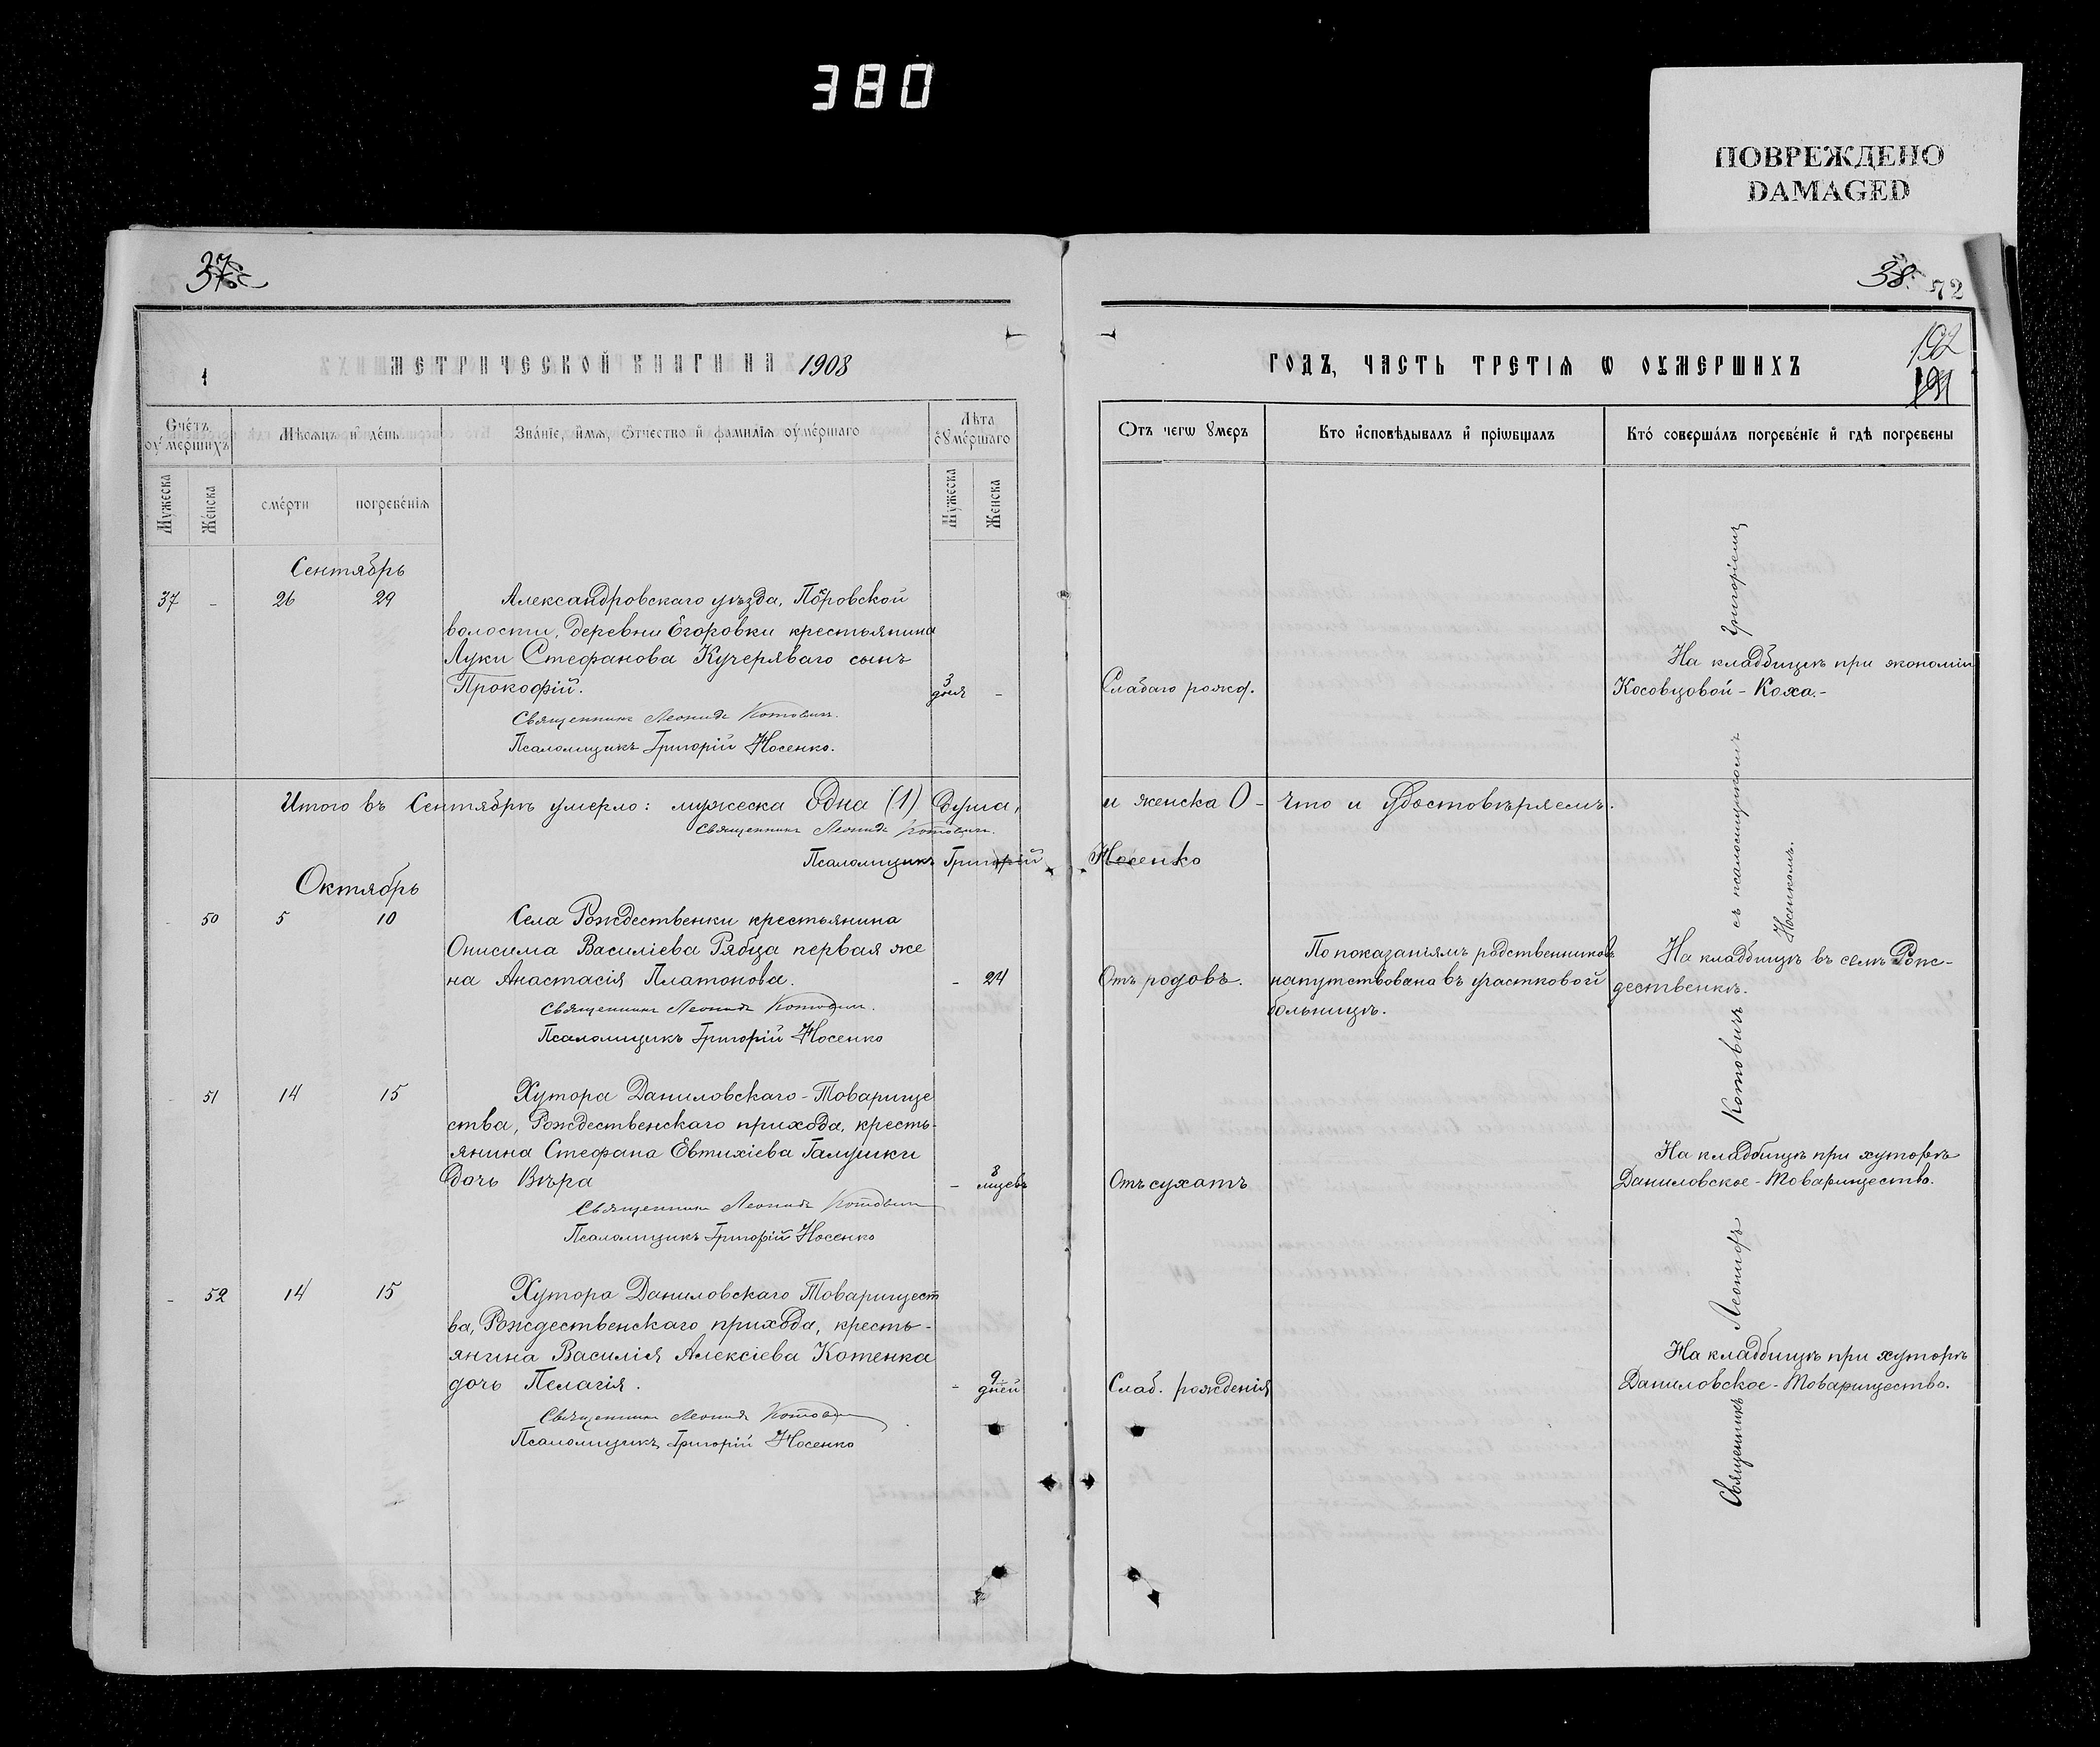 380
ПОВРЕЖДЕНО
DAMAGED
37
38.
72
МЕТРИЧЕСКОЙ КНИГИ НА 1908
ГОДЪ, ЧАСТЬ ТРЕТІѦ Ѡ ОУМЕРШИХЪ
192
191
1
Счётъ оумершихъ
Мѣсѧцъ и день
Званіе, имѧ, отчество и фамиліѧ оумершаго
Лѣта оумершаго
Отъ чегѡ умеръ
Кто исповѣдывалъ и пріѡбщалъ
Кто совершалъ погребеніе и гдѣ погребены
Мужеска
Женска
смерти
погребеніѧ
Мужеска
Женска
Сентябрь
37 - 26 29
Александровскаго уѣзда, Покровской
волости, деревни Егоровки крестьянина
Луки Стефанова Кучеряваго сынъ
Прокофій.
3 дня -
Слабаго рожд.
На кладбищѣ при экономіи
Косовцовой - Коха.-
Священникъ Леонидъ Котовичъ.
Псаломщикъ Григорій Носенко.
Итого въ Сентябрѣ умерло: мужеска Одна (1) душа, и женска 0 - Что и удостовѣряемъ.
Священникъ Леонидъ Котовичъ.
Псаломщикъ Григорій Носенко
Октябрь
- 50 5 10
Села Рождественки крестьянина
Онисима Василіева Рябца первая же
на Анастасія Платонова.
- 24
Отъ родовъ.
По показаніямъ родственниковъ
напутствована въ участковой
больницѣ.
На кладбищѣ въ селѣ Рож-
дественкѣ.
Священникъ Леонидъ Котовичъ.
Псаломщикъ Григорій Носенко
- 51 14 15
Хутора Даниловскаго - Товарище
ства, Рождественскаго прихода, кресть-
янина Стефана Евтихіева Галушки
дочь Вѣра
- 8 мцевъ
Отъ сухотъ
На кладбищѣ при хуторѣ
Даниловское - Товарищество.
Священникъ Леонидъ Котовичъ
Псаломщикъ Григорій Носенко
- 52 14 15
Хутора Даниловскаго Товарищест
ва, Рождественскаго прихода, кресть-
янина Василія Алексіева Котенка
дочь Пелагія.
- 9 дней
Слаб. рожденія
На кладбищѣ при хуторѣ
Даниловское - Товарищество.
Священникъ Леонидъ Котовичъ
Псаломщикъ Григорій Носенко
Священникъ Леонидъ Котовичъ съ псаломщикомъ Григоріемъ
Носенкомъ.